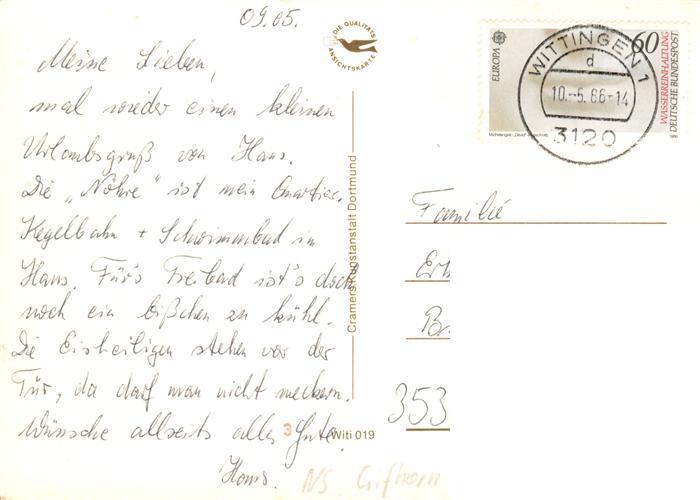 09.05.
Meine Lieben,
mal wieder einen kleinen
Urlaubsgruß von Hans.
Die „Nöhre" ist mein Quartier.
Kegelbahn + Schwimmbad im
Haus. Für's Freibad ist's doch
noch ein bißchen zu kühl.
Die Eisheiligen stehen vor der
Tür, da darf man nicht meckern.
Wünsche allseits alles Gute.
Hans.
NS. Gifhorn
DIE QUALITÄTS
ANSICHTSKARTE
Cramers Kunstanstalt Dortmund
3 Witi 019
EUROPA
60
WASSERREINHALTUNG
DEUTSCHE BUNDESPOST
1986
WITTINGEN 1
d
10.-5.86-14
3120
Familie
353